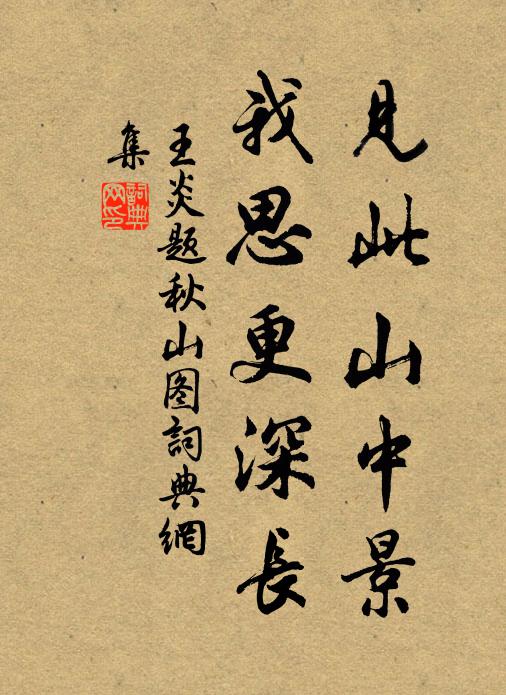 見此山中景
我思更深長
王炎题秋山图詞典網
集
詞典
网印